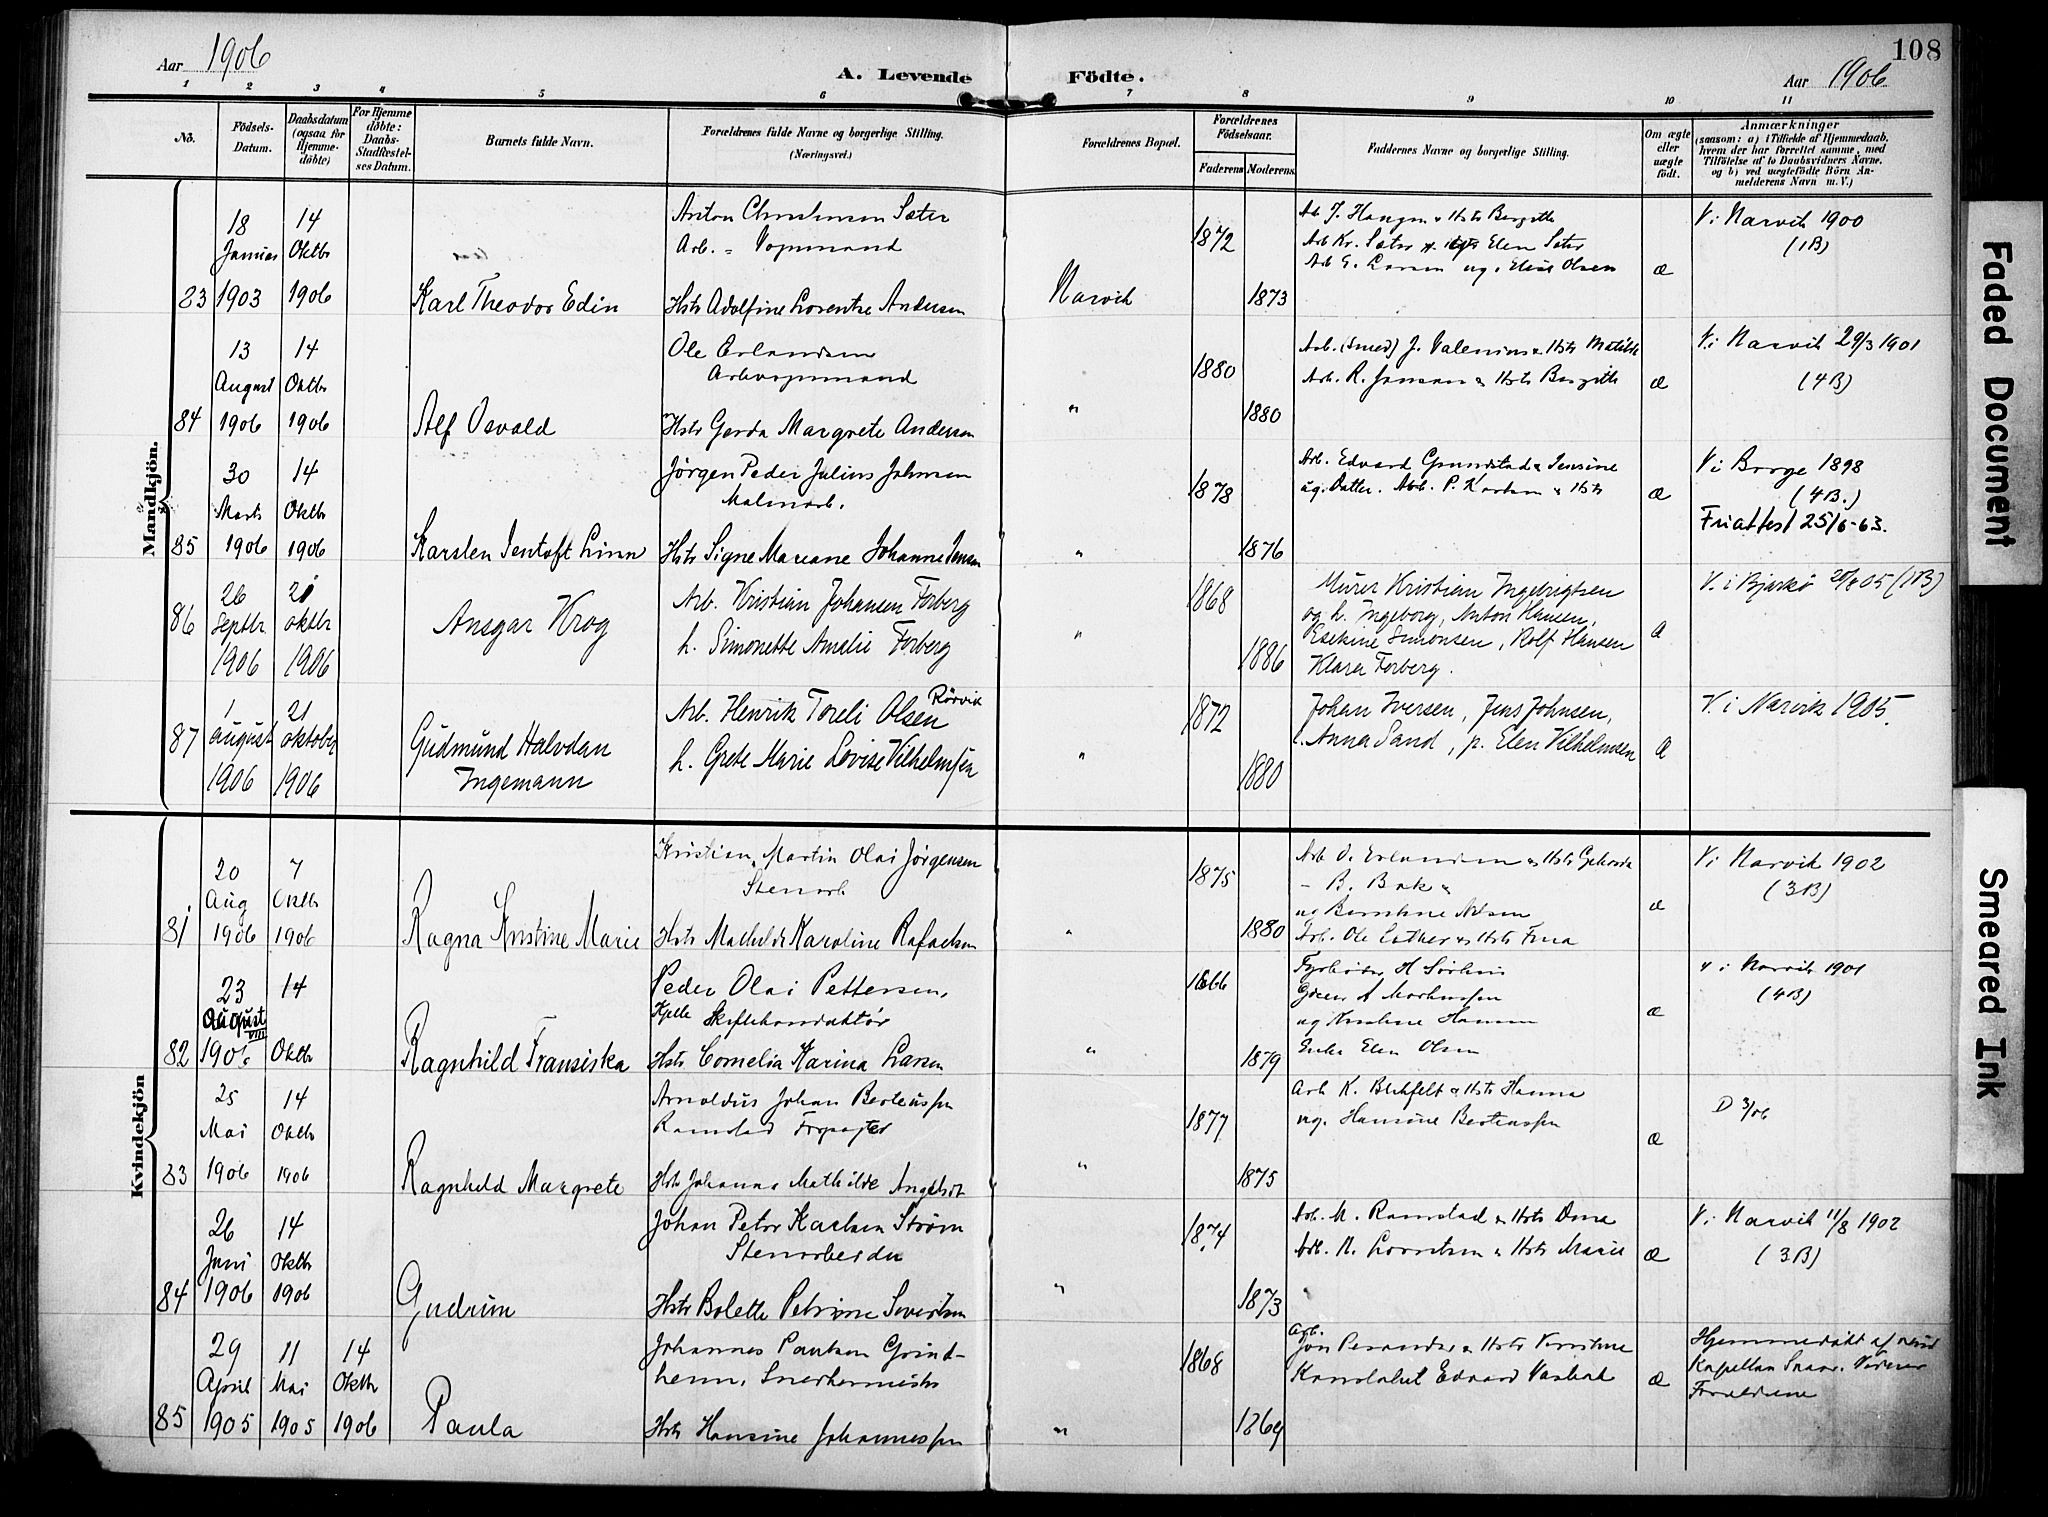 108
Aar 1906
A. Levende Födte.
Aar 1906
1 2 3 4 5 6 7 8 9 10 11
No.
Födsels-Datum.
Daabsdatum (ogsaa for Hjemme-döbte)
For Hjemme döbte: Daabs-Stadfæstel-ses Datum.
Barnets fulde Navn.
Forældrenes fulde Navne og borgerlige Stilling.
(Næringsvei.)
Forældrenes Bopæl.
Forældrenes Födselsaar.
Faderens Moderens
Faddernes Navne og borgerlige Stilling.
Om ægte eller uægte födt.
Anmærkninger
(saasom: a) i Tilfælde af Hjemmedaab,
hvem der har forrettet samme, med
Tilföielse af to Daabsvidners Navne,
og b) ved uægtefödte Börn An-
melderens Navn m. V.)
Mandkjön.
83
18 Januar 1903
14 Oktbr 1906
Karl Theodor Edin
Anton Christensen Sæter
Arb. - Vognmand
Hstr Adolfine Lorentze Andersen
Narvik
1872
1873
Arb Kr. Sæter Elen Sæter
Arb E. Larsen ug. Elise Olsen
æ
V. i Narvik 1900
(1B)
84
13 August 1906
14 Oktbr 1906
Alf Osvald
Ole Erlandsen
Hstr Gerda Margrete Andersen
"
1880
1880
Arb. (Smed) J. Valenius & Hstr Matilde
Arb. R. Jensen & Hstr Bergitte
æ
V. i Narvik 29/3 1901
(4B)
85
30 Marts 1906
14 Oktbr 1906
Karsten Jentoft Linn
Jørgen Peder Julius Johnsen
Malmarb.
Hstr Signe Mariane Johanne Jensen
"
1878
1876
Arb. Edvard Grundstad & Jensine
ug. Datter. Arb. P. Karlsen & Hstr
æ
V i Borge 1898
(4B.)
Friattest 25/6-63.
86
26 Septbr 1906
21 oktbr 1906
Ansgar Krog
Arb. Kristian Johansen Forberg
h. Simonette Amalie Forberg
"
1868
1886
Murer Kristian Ingebrigtsen
og h. Ingeborg, Anton Hansen,
Esekine Simonsen, Rolf Hansen
Klara Forberg.
æ
V. i Bjarkø 1905 (1B)
87
1 august 1906
21 oktober 1906
Gudmund Halvdan
Ingemann
Arb. Henrik Toreli Olsen Rörvik
h. Grete Marie Lovise Vilhelmsen
"
1872
1880
Johan Iversen, Jens Johnsen,
Anna Sand, p. Elen Vilhelmsen
æ
V. i Narvik 1905.
Kvindekjön
81
20 Aug 1906
7 Oktbr 1906
Ragna Kristine Marie
Kristian Martin Olai Jørgensen
Stenarb
Hstr Mathilde Karoline Rafaelsen
"
1875
1880
Arb O. Erlandsen & Hstr
- B. Bak &
ug Bernhine Nilsen
Arb. Ole Esther & Hstr Fina
æ
V. i Narvik 1902
(3B)
82
23 August 1906
VIII
14 Oktbr
Ragnhild Fransiska
Peder Olai Pettersen,
Kjelle Skiftekonduktør
Hstr Cornelia Karina Larsen
"
1866
1879
ug Kristine Hansen
Enke Elen Olsen
æ
V i Narvik 1901
(4B)
83
25 Mai 1906
14 Oktbr 1906
Ragnhild Margrete
Arnoldus Johan Berteussen
Ramstad
Hstr Johanna Mathilde
"
1877
1875
Arb K. Blikfelt & Hstr Hanna
ug. Hansine Berteussen
æ
D 3/06
84
26 Juni 1906
14 Oktbr 1906
Gudrun
Johan Peter Karlsen Strøm
Stenarbeider
Hstr Bolette Petrine Sivertsen
"
1874
1873
Arb. M. Ramstad & Hstr Dina
Arb. N. Lorentsen & Hstr Marie
æ
V. i Narvik 11/8 1902
(3B)
85
29 April 1905
11 Mai 1905
14 Oktbr 1906
Paula
Johannes Paulsen Grind-
heim, Snedkermester
Hstr Hansine Johannessen
"
1868
1869
Arb.
Jon & Hstr Kirstine
Edvard
æ
Hjemmedøbt af
Kapellan
Forældrene
Faded Document
Smeared Ink